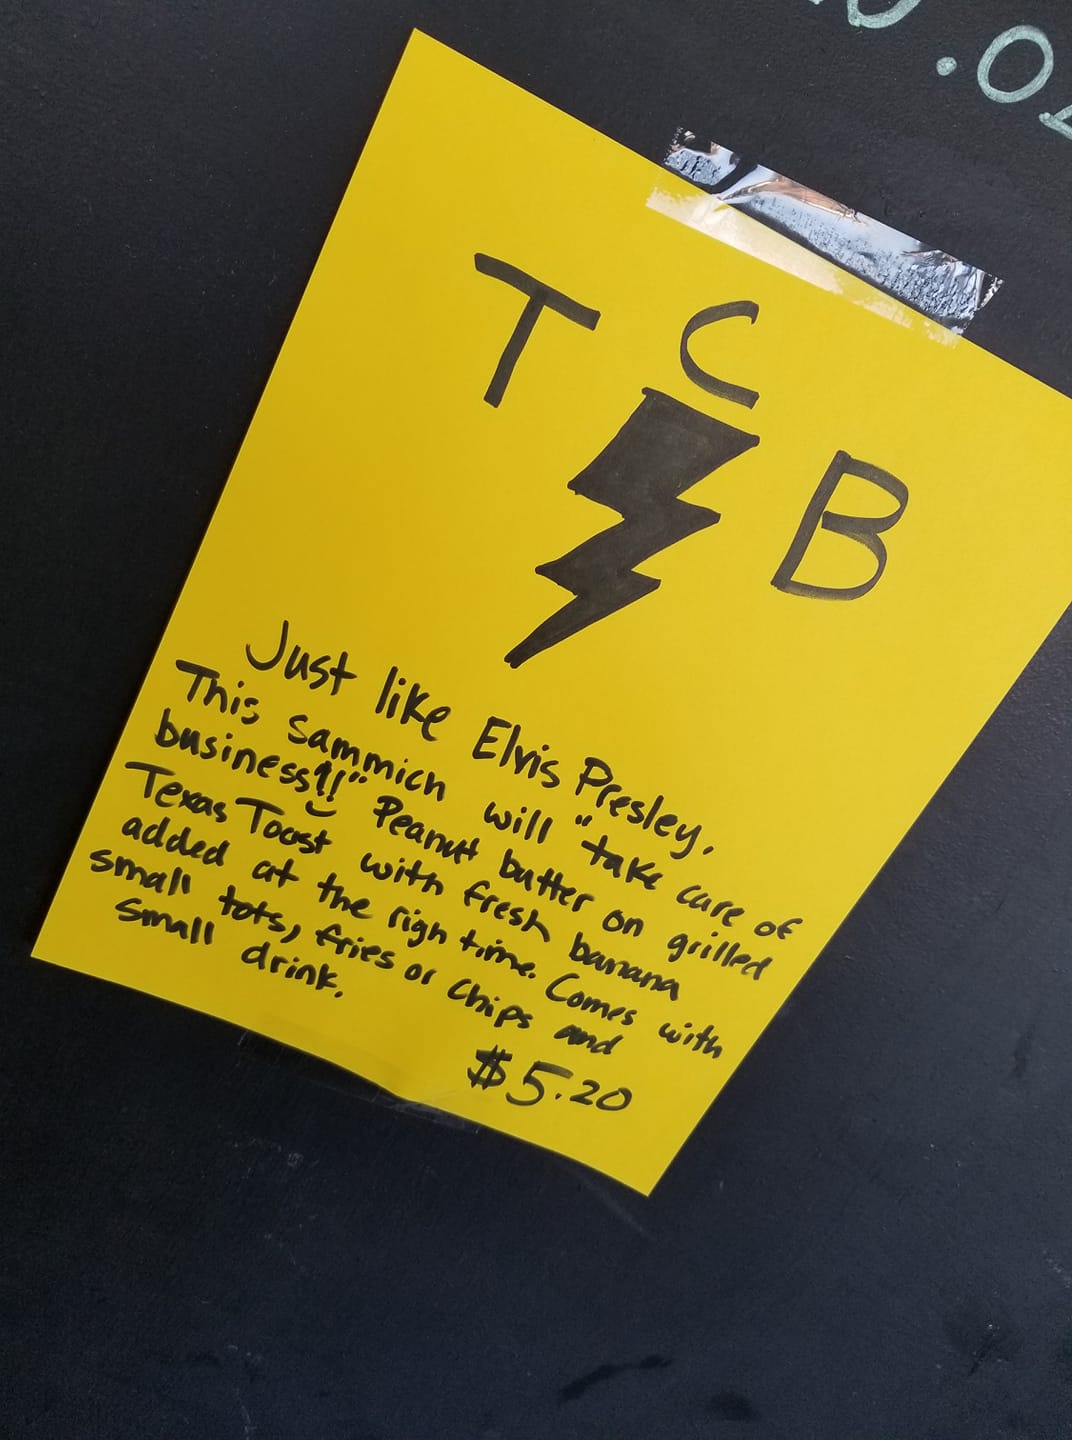 .02
T C B
Just like Elvis Presley,
This sammich will "take care of
business!!" Peanut butter on grilled
Texas Toast with fresh banana
added at the righ time. Comes with
small tots, fries or chips and
small drink.
$5.20